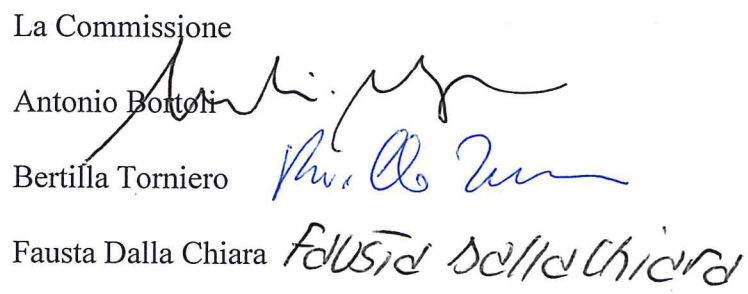 La Commissione
Antonio Bortoli
Bertilla Torniero
Fausta Dalla Chiara Fausta Dalla Chiara